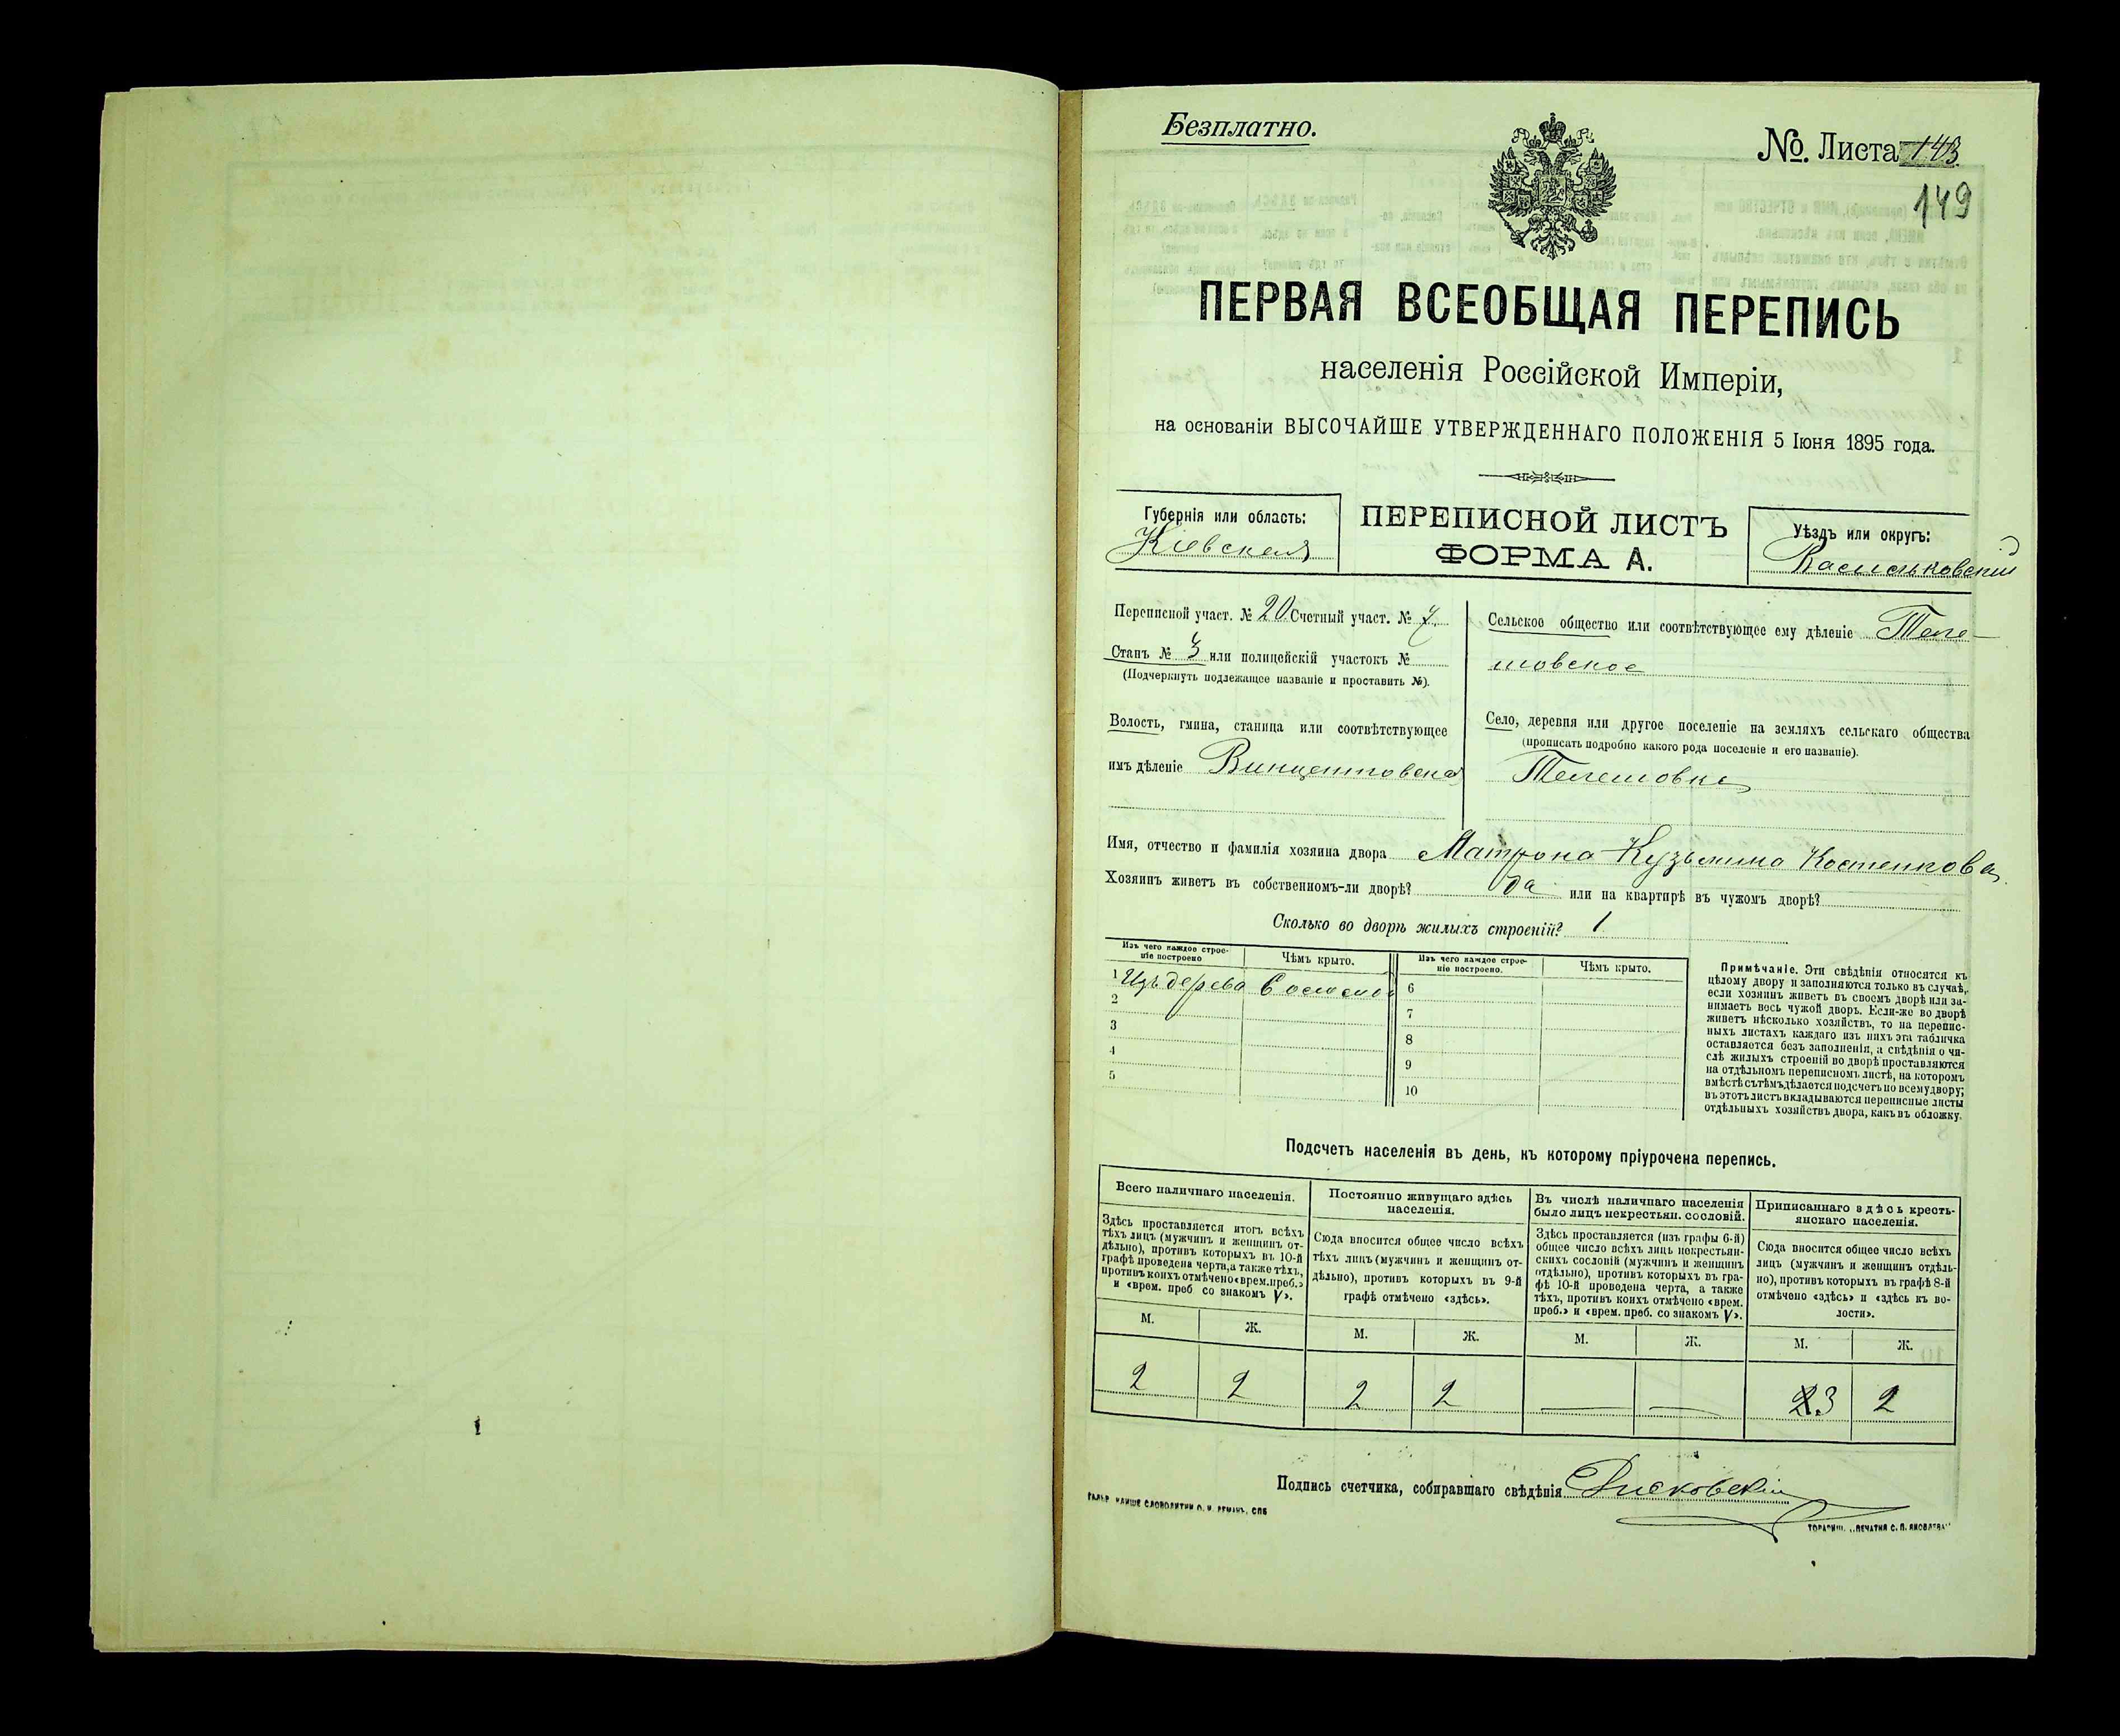 Безплатно.
№. Листа 143
149
ПЕРВАЯ ВСЕОБЩАЯ ПЕРЕПИСЬ
населенія Россійской Имперіи,
на основаніи ВЫСОЧАЙШЕ УТВЕРЖДЕННАГО ПОЛОЖЕНІЯ 5 Іюня 1895 года.
Губернія или область:
Кіевская
ПЕРЕПИСНОЙ ЛИСТЪ
ФОРМА А.
Уѣздъ или округъ:
Васильковскій
Переписной участ. № 20 Счетный участ. № 7
Станъ № 3 или полицейскій участокъ №
(Подчеркнуть подлежащее названіе и проставить №).
Волость, гмина, станица или соотвѣтствующее
имъ дѣленіе Винцентовская
Сельское общество или соотвѣтствующее ему дѣленіе Теле-
шовское
Село, деревня или другое поселеніе на земляхъ сельскаго общества
(прописать подробно какого рода поселеніе и его названіе).
Телешовка
Имя, отчество и фамилія хозяина двора Матрона Кузьмина Костенкова
Хозяинъ живетъ въ собственномъ-ли дворѣ? да или на квартирѣ въ чужомъ дворѣ?
Сколько во дворѣ жилыхъ строеній? 1
Изъ чего каждое строе-
ніе построено
Чѣмъ крыто.
1 Изъ дерева Соломой
2
3
4
5
Изъ чего каждое строе-
ніе построено.
Чѣмъ крыто.
6
7
8
9
10
Примѣчаніе. Эти свѣдѣнія относятся къ
цѣлому двору и заполняются только въ случаѣ,
если хозяинъ живетъ въ своемъ дворѣ или за-
нимаетъ весь чужой дворъ. Если-же во дворѣ
живетъ нѣсколько хозяйствъ, то на перепис-
ныхъ листахъ каждаго изъ нихъ эта табличка
оставляется безъ заполненія, а свѣдѣнія о чи-
слѣ жилыхъ строеній во дворѣ проставляются
на отдѣльномъ переписномъ листѣ, на которомъ
вмѣстѣ съ тѣмъ дѣлается подсчетъ по всему двору;
въ этотъ листъ вкладываются переписные листы
отдѣльныхъ хозяйствъ двора, какъ въ обложку.
Подсчетъ населенія въ день, къ которому пріурочена перепись.
Всего наличнаго населенія.
Здѣсь проставляется итогъ всѣхъ
тѣхъ лицъ (мужчинъ и женщинъ от-
дѣльно), противъ которыхъ въ 10-й
графѣ проведена черта, а также тѣхъ,
противъ коихъ отмѣчено «врем. преб.»
и «врем. преб со знакомъ V».
М. Ж.
2 2
Постоянно живущаго здѣсь
населенія.
Сюда вносится общее число всѣхъ
тѣхъ лицъ (мужчинъ и женщинъ от-
дѣльно), противъ которыхъ въ 9-й
графѣ отмѣчено «здѣсь».
М. Ж.
2 2
Въ числѣ наличнаго населенія
было лицъ некрестьян. сословій.
Здѣсь проставляется (изъ графы 6-й)
общее число всѣхъ лицъ некрестьян-
скихъ сословій (мужчинъ и женщинъ
отдѣльно), противъ которыхъ въ гра-
фѣ 10-й проведена черта, а также
тѣхъ, противъ коихъ отмѣчено «врем.
преб.» и «врем. преб. со знакомъ V».
М. Ж.
— —
Приписаннаго здѣсь кресть-
янскаго населенія.
Сюда вносится общее число всѣхъ
лицъ (мужчинъ и женщинъ отдѣль-
но), противъ которыхъ въ графѣ 8-й
отмѣчено «здѣсь» и «здѣсь къ во-
лости».
М. Ж.
2 3 2
Подпись счетчика, собиравшаго свѣдѣнія
СЛОВОЛИТНИ О. И. ЛЕМАНЪ, СПБ
ПЕЧАТНЯ С. П. ЯКОВЛЕВА